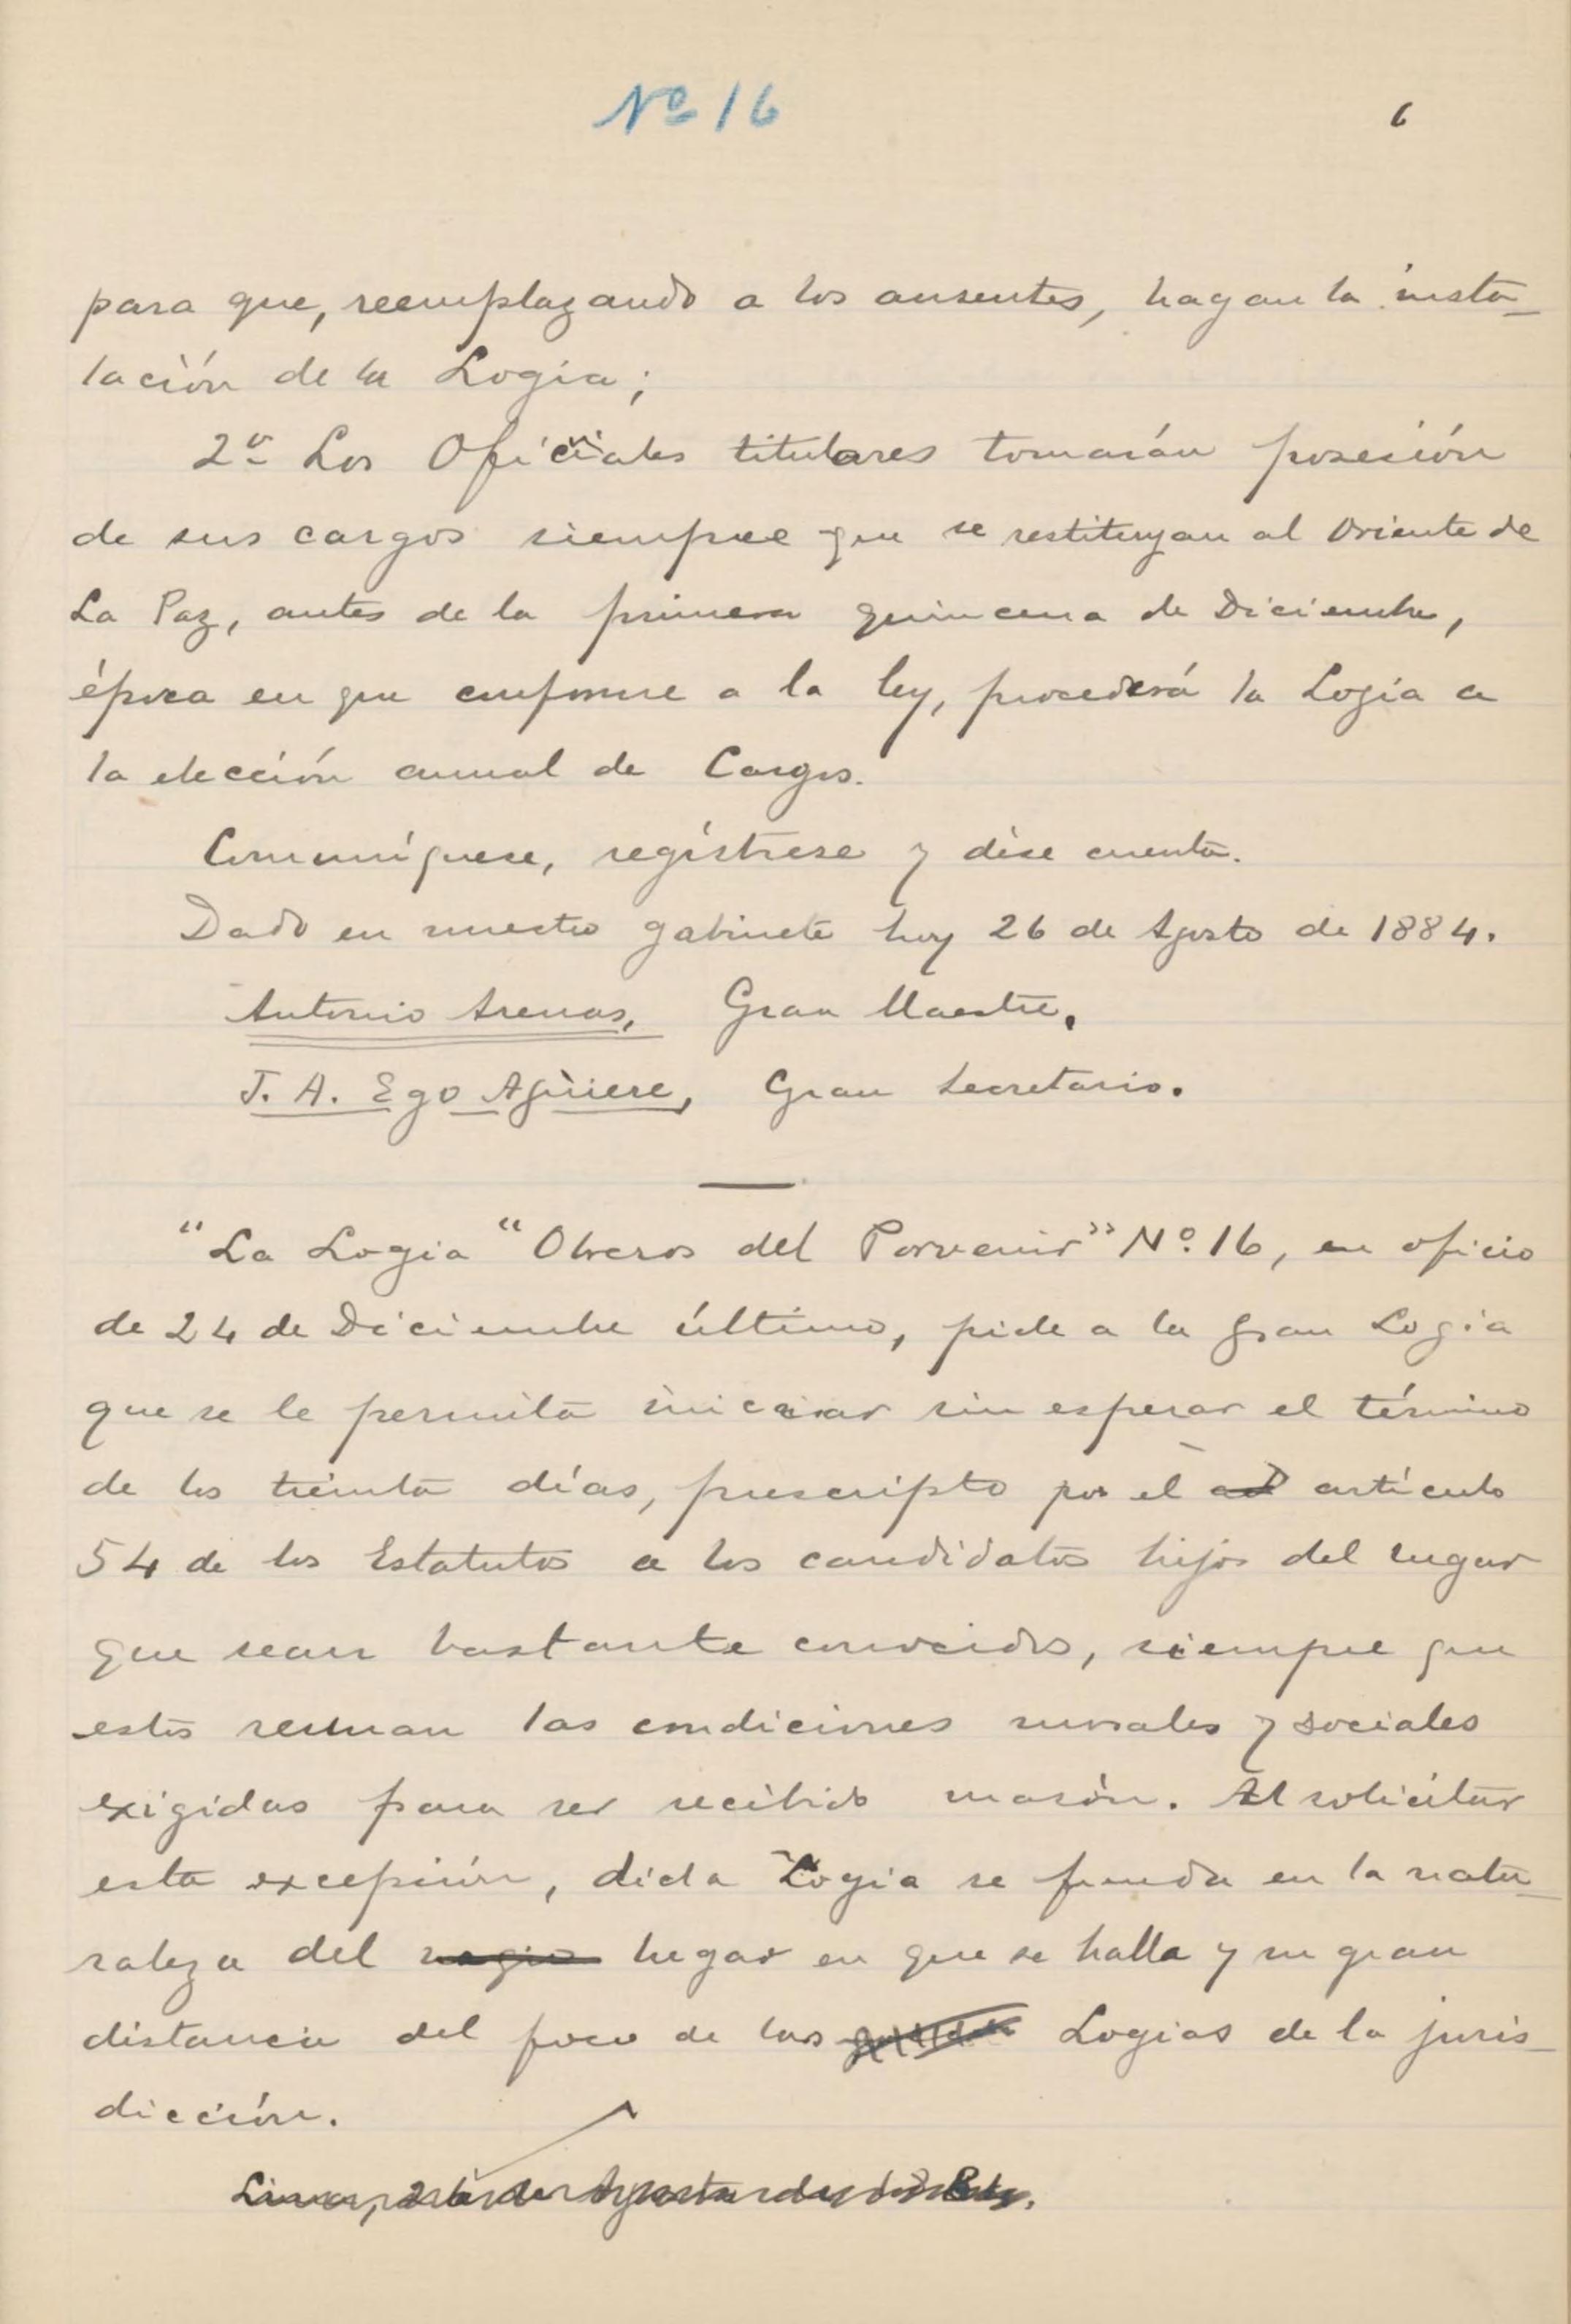 Nº 16
6
para que, reemplazando a los ausentes, hagan la insta-
lación de la Logia;
2º Los Oficiales titulares tomarán posesión
de sus cargos siempre que se restituyan al Oriente de
La Paz, antes de la primera quincena de Diciembre,
época en que conforme a la ley, procederá la Logia a
la elección anual de Cargos.
Comuníquese, regístrese y dése cuenta.
Dado en nuestro gabinete hoy 26 de Agosto de 1884.
Antonio Arenas, Gran Maestre.
J. A. Ego Agüiere, Gran Secretario.
"La Logia "Obreros del Porvenir" Nº 16, en oficio
de 24 de Diciembre último, pide a la Gran Logia
que se le permita iniciar sin esperar el término
de los treinta días, prescripto por el artículo
54 de los Estatutos a los candidatos hijos del lugar
que sean bastante conocidos, siempre que
estos reunan las condiciones morales y sociales
exigidas para ser recibido masón. Al solicitar
esta excepción, dicha Logia se funda en la natu-
raleza del lugar en que se halla y su gran
distancia del foco de las Logias de la juris-
dicción.
Lima, 26 de Agosto de